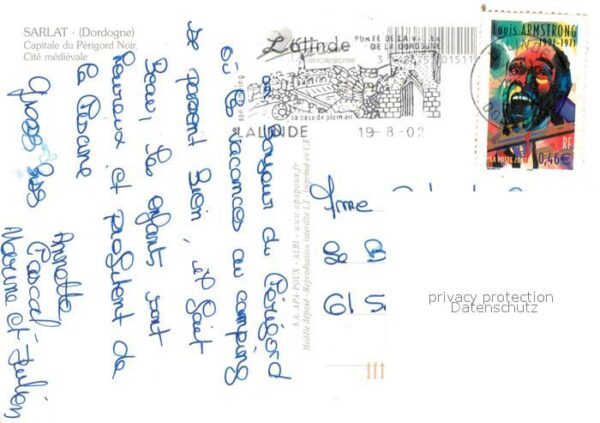 SARLAT - (Dordogne)
Capitale du Périgord Noir,
Cité médiévale
Lalinde
PORTE DE LA V
DE LA DORDOGNE
sa base de plein air
LALINDE 19-8-02
Louis ARMSTRONG
1901-1971
RF
LA POSTE 2002
0,46€
Bonjour du Périgord
où les vacances au camping
se passent bien, il fait
beau, les enfants sont
heureux et profitent de
la piscine
Gros Bis
Annette
Pascal
Marine et Julien
S.A. APA-POUX - ALBI - www.apapoux.fr
Modèle déposé - Reproduction interdite I.T - Imprimé en CEE
Mme
privacy protection
Datenschutz